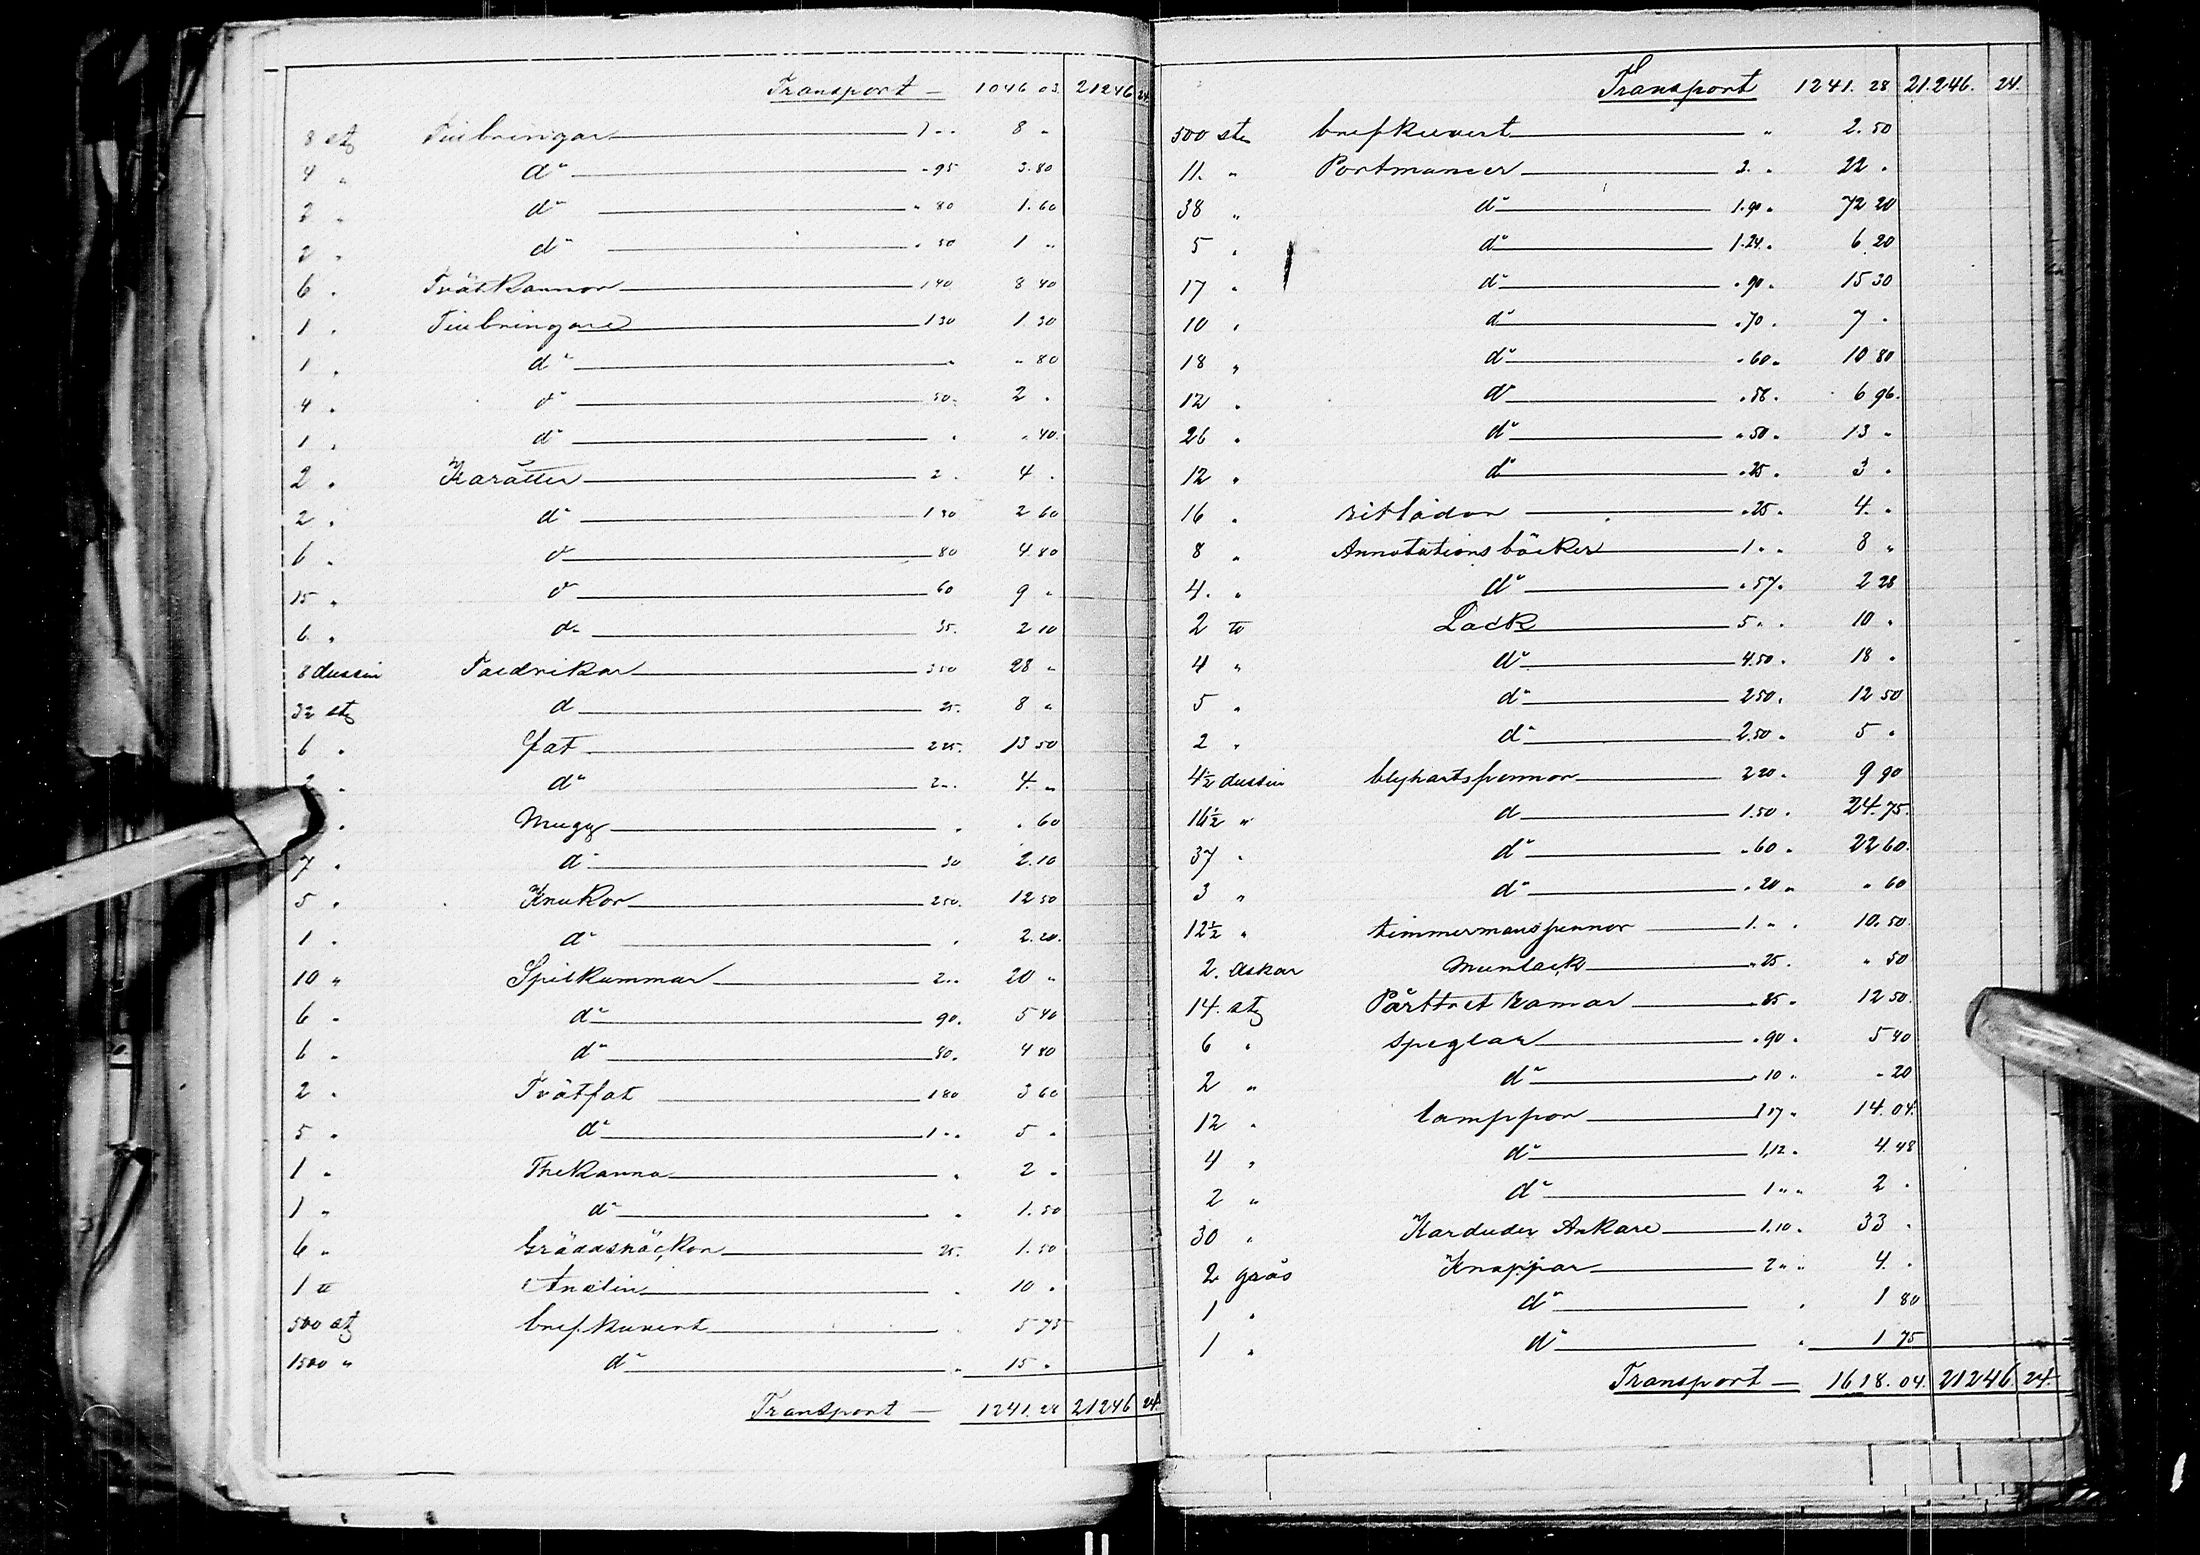 Transport — 1046 03. 21246 24
8 st Tinbringar 1 " " 8 "
4 " d:o " 95 3.80
2 " d:o " 80 1.60
2 " d:o " 50 1 "
6 " Tvätkannor 1 40 8 40
1 " Tinbringare 1 30 1.30
1 " d:o " " 80
4 " d:o 50 2 "
1 " d:o " " 40
2 " Karåtter 2 " 4 "
2 " d:o 1 30 2 60
6 " d:o 80 4.80
15 " d:o 60 9 "
6 " d:o 35. 2 10
8 dussin Taldrikar 3 50 28 "
32 st d 25. 8 "
6 " fat 2 25. 13 50
2 " d:o 2 " " 4. "
" Mugg " " 60
7 " d:o 30 2.10
5 " Krukor 2 50. 12 50
1 " d:o " 2.20.
10 " Spilkummar 2 " " 20 "
6 " d:o 90. 5 40
6 " d:o 80. 4 80
2 " Tvätfat 1 80 3 60
5 " d:o 1 " " 5 "
1 " Thekanna " 2 "
1 " d:o " 1.50
6 " Gräddsnäckor 25. 1.50
1 tt Anelin " 10 "
500 st brefkuvert " 5 75
1500 " d:o " 15 "
Transport — 1241. 28 21246 24.
Transport 1241. 28 21.246. 24.
500 st brefkuvert " 2.50
11. " Portmaneer 2. " 22 "
38 " d:o 1.90 " 72 20
5 " d:o 1.24. " 6 20
17 " d:o " 90 " 15 30
10 " d:o " 70 " 7 "
18 " d:o " 60 " 10 80
12 " d:o " 58 " 6 96.
26 " d:o " 50 " 13 "
12 " d:o " 25 " 3 "
16 " ritlådor " 25 " 4. "
8 " Annotationsböcker 1 " " 8 "
4. " d:o " 57 " 2 28
2 tt Lack 5 " " 10 "
4 " d:o 4.50 " 18 "
5 " d:o 2 50 " 12 50
2 " d:o 2.50 " 5 "
4½ dussin blyhartspennor 2 20 " 9 90
16½ " d 1.50 " 24.75.
37 " d:o " 60 " 22 60.
3 " d:o " 20 " " 60
12½ " timmermanspennor 1. " " 10. 50.
2. askar Munlack " 25. " 50
14. st Pårttret ramar " 85 " 12 50.
6 " speglar " 90 " 5 40
2 " d:o " 10 " " 20
12 " lamppor 1 17 " 14. 04.
4 " d:o 1,12 " 4.48
2 " d:o 1 " " 2 "
30 " Karduder Ankare 1.10 " 33 "
2 grås Knappar 2 " " 4. "
1 " d:o " 1 80
1 " d:o " 1 75
Transport — 1618. 04. 21246. 24.